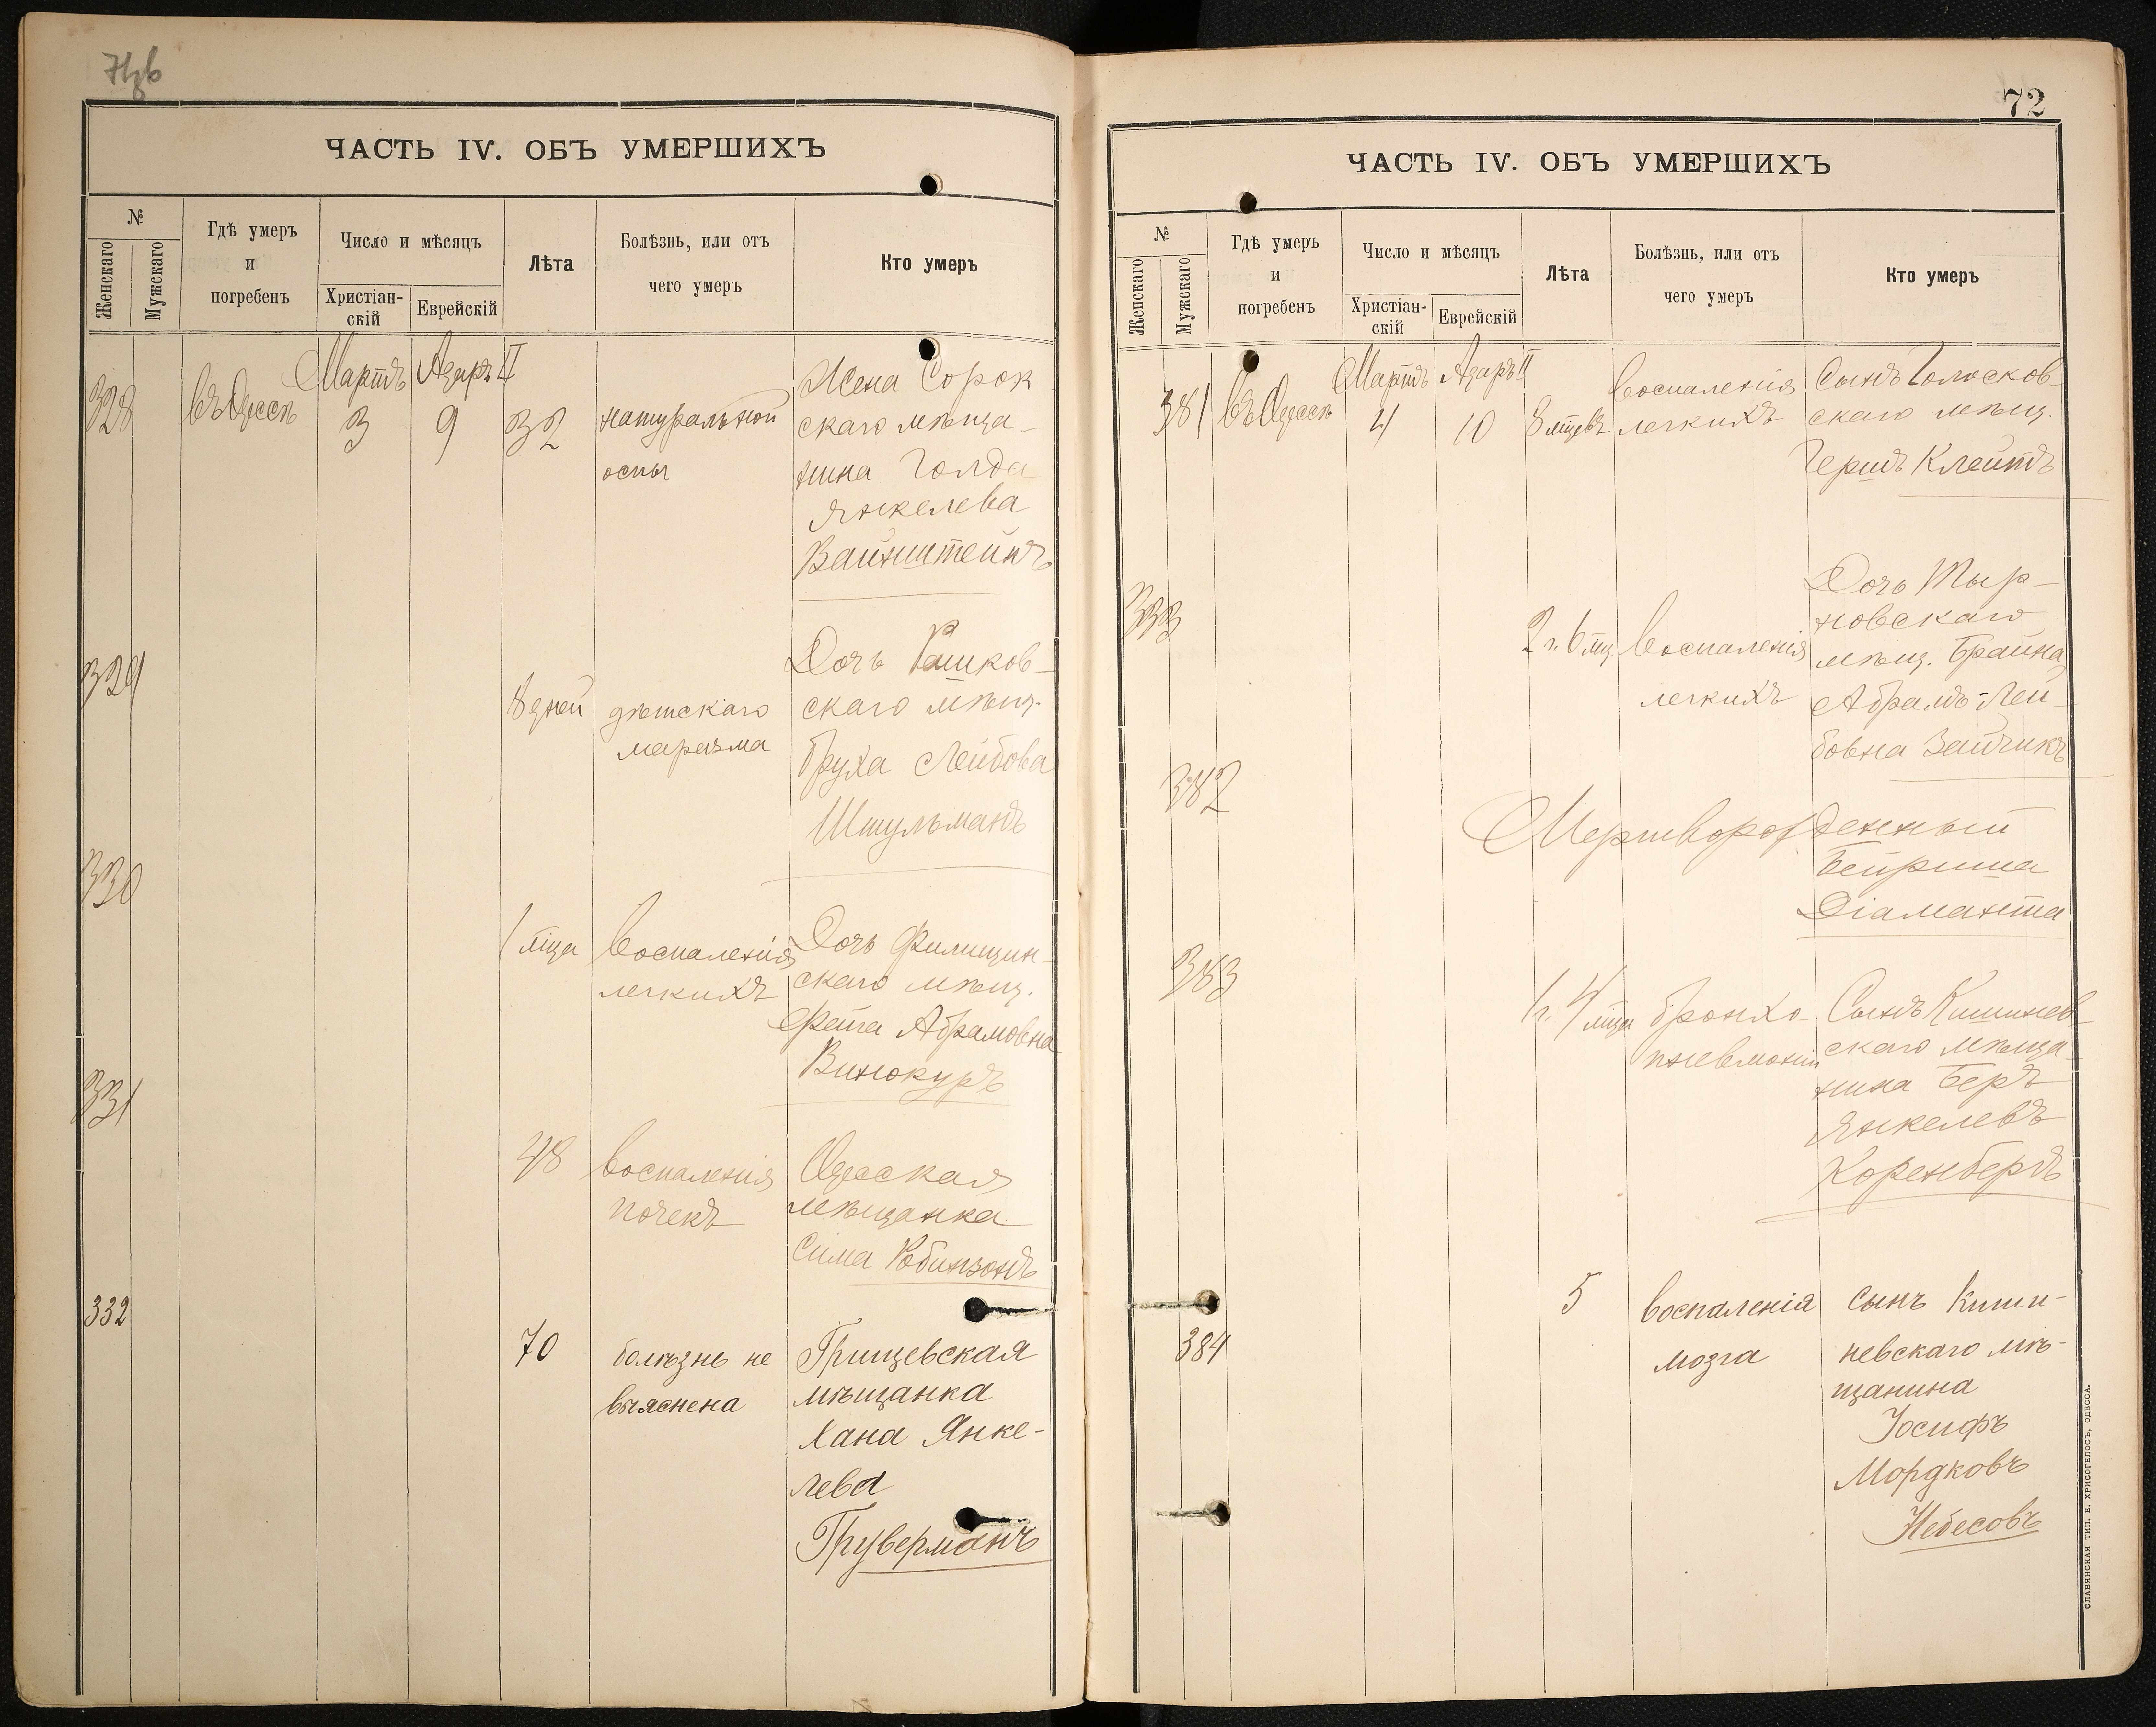 71зв
ЧАСТЬ IV. ОБЪ УМЕРШИХЪ
№
Женскаго
Мужскаго
Гдѣ умеръ
и
погребенъ
Число и мѣсяцъ
Христіан-
скій
Еврейскій
Лѣта
Болѣзнь, или отъ
чего умеръ
Кто умеръ
328
въ Одессѣ
Мартъ
3
Адаръ II
9
32
натуральной
оспы
Жена Сорок
скаго мѣща-
нина Голда
Янкелева
Вайнштейнъ
329
8 дней
дѣтскаго
маразма
Дочь Рашков-
скаго мѣщ.
Бруха Лейбова
Шпульманъ
330
1 мца
Воспаленія
легкихъ
Дочь Филицин-
скаго мѣщ.
Фейга Абрамовна
Винокуръ
331
48
воспаленія
почекъ
Одесская
мѣщанка
Сима Робинзонъ
332
70
болѣзнь не
выяснена
Грицевская
мѣщанка
Хана Янке-
лева
Груверманъ
72
ЧАСТЬ IV. ОБЪ УМЕРШИХЪ
№
Женскаго
Мужскаго
Гдѣ умеръ
и
погребенъ
Число и мѣсяцъ
Христіан-
скій
Еврейскій
Лѣта
Болѣзнь, или отъ
чего умеръ
Кто умеръ
381
въ Одессѣ
Мартъ
4
Адаръ II
10
8 мцевъ
воспаленія
легкихъ
Сынъ Голосков-
скаго мѣщ.
Гершъ Клейтъ
333
2 г. 6 мц.
Воспаленія
легкихъ
Дочь Тыр-
новскаго
мѣщ. Брайна
Абрамъ-Лей-
бовна Зайчикъ
382
Мертворожденный
Бейриша
Діаманта
383
1 г. 4 мца
бронхо-
пневмоніи
Сынъ Кишинев-
скаго мѣща-
нина Беръ
Янкелевъ
Коренбергъ
384
5
воспаленія
мозга
сынъ Киши-
невскаго мѣ-
щанина
Іосифъ
Мордковъ
Небесовъ
СЛАВЯНСКАЯ ТИП. Е. ХРИСОГЕЛОСЪ, ОДЕССА.